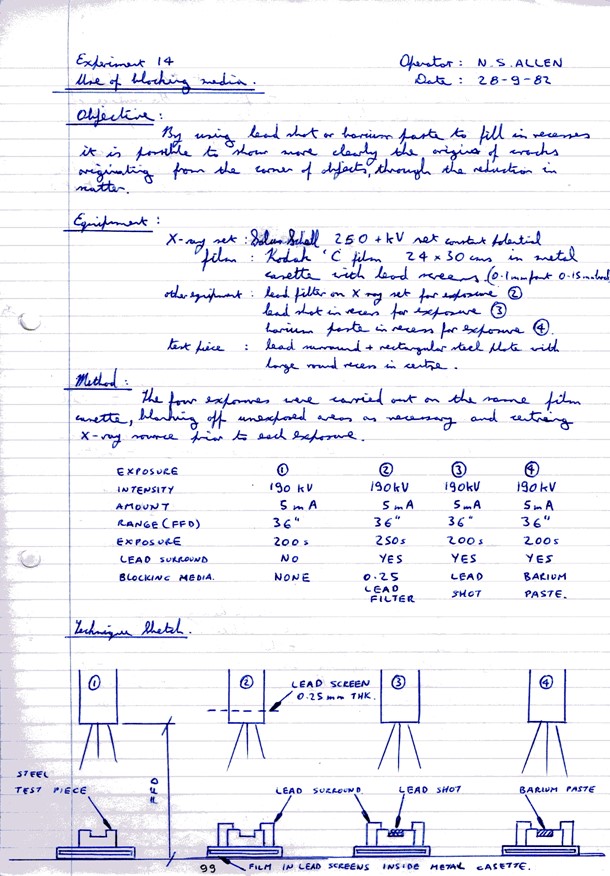 Experiment 14 Operator: N.S. ALLEN
Use of blocking media. Date: 28-9-82
Objective:
By using lead shot or barium paste to fill in recesses
it is possible to show more clearly the origins of cracks
originating from the corner of objects, through the reduction in
matter.
Equipment:
X-ray set: 250 + kV set constant potential
film: Kodak 'C' film 24 x 30 cms in metal
casette with lead screens (0.1mm front 0.15mm
other equipment: lead filter on X ray set for exposure ②
lead shot in recess for exposure ③
barium paste in recess for exposure ④.
test piece: lead surround + rectangular steel plate with
large round recess in centre.
Method:
The four exposures were carried out on the same film
casette, blanking off unexposed areas as necessary and centring
X-ray source prior to each exposure.
EXPOSURE ① ② ③ ④
INTENSITY 190 kV 190kV 190kV 190kV
AMOUNT 5mA 5mA 5mA 5mA
RANGE (FFD) 36" 36" 36" 36"
EXPOSURE 200s 250s 200s 200s
LEAD SURROUND NO YES YES YES
BLOCKING MEDIA. NONE 0.25 LEAD BARIUM
LEAD SHOT PASTE.
FILTER
Technique Sketch.
① ② LEAD SCREEN ③ ④
0.25mm THK.
STEEL
TEST PIECE FFD LEAD SURROUND. LEAD SHOT BARIUM PASTE
99 FILM IN LEAD SCREENS INSIDE METAL CASETTE.